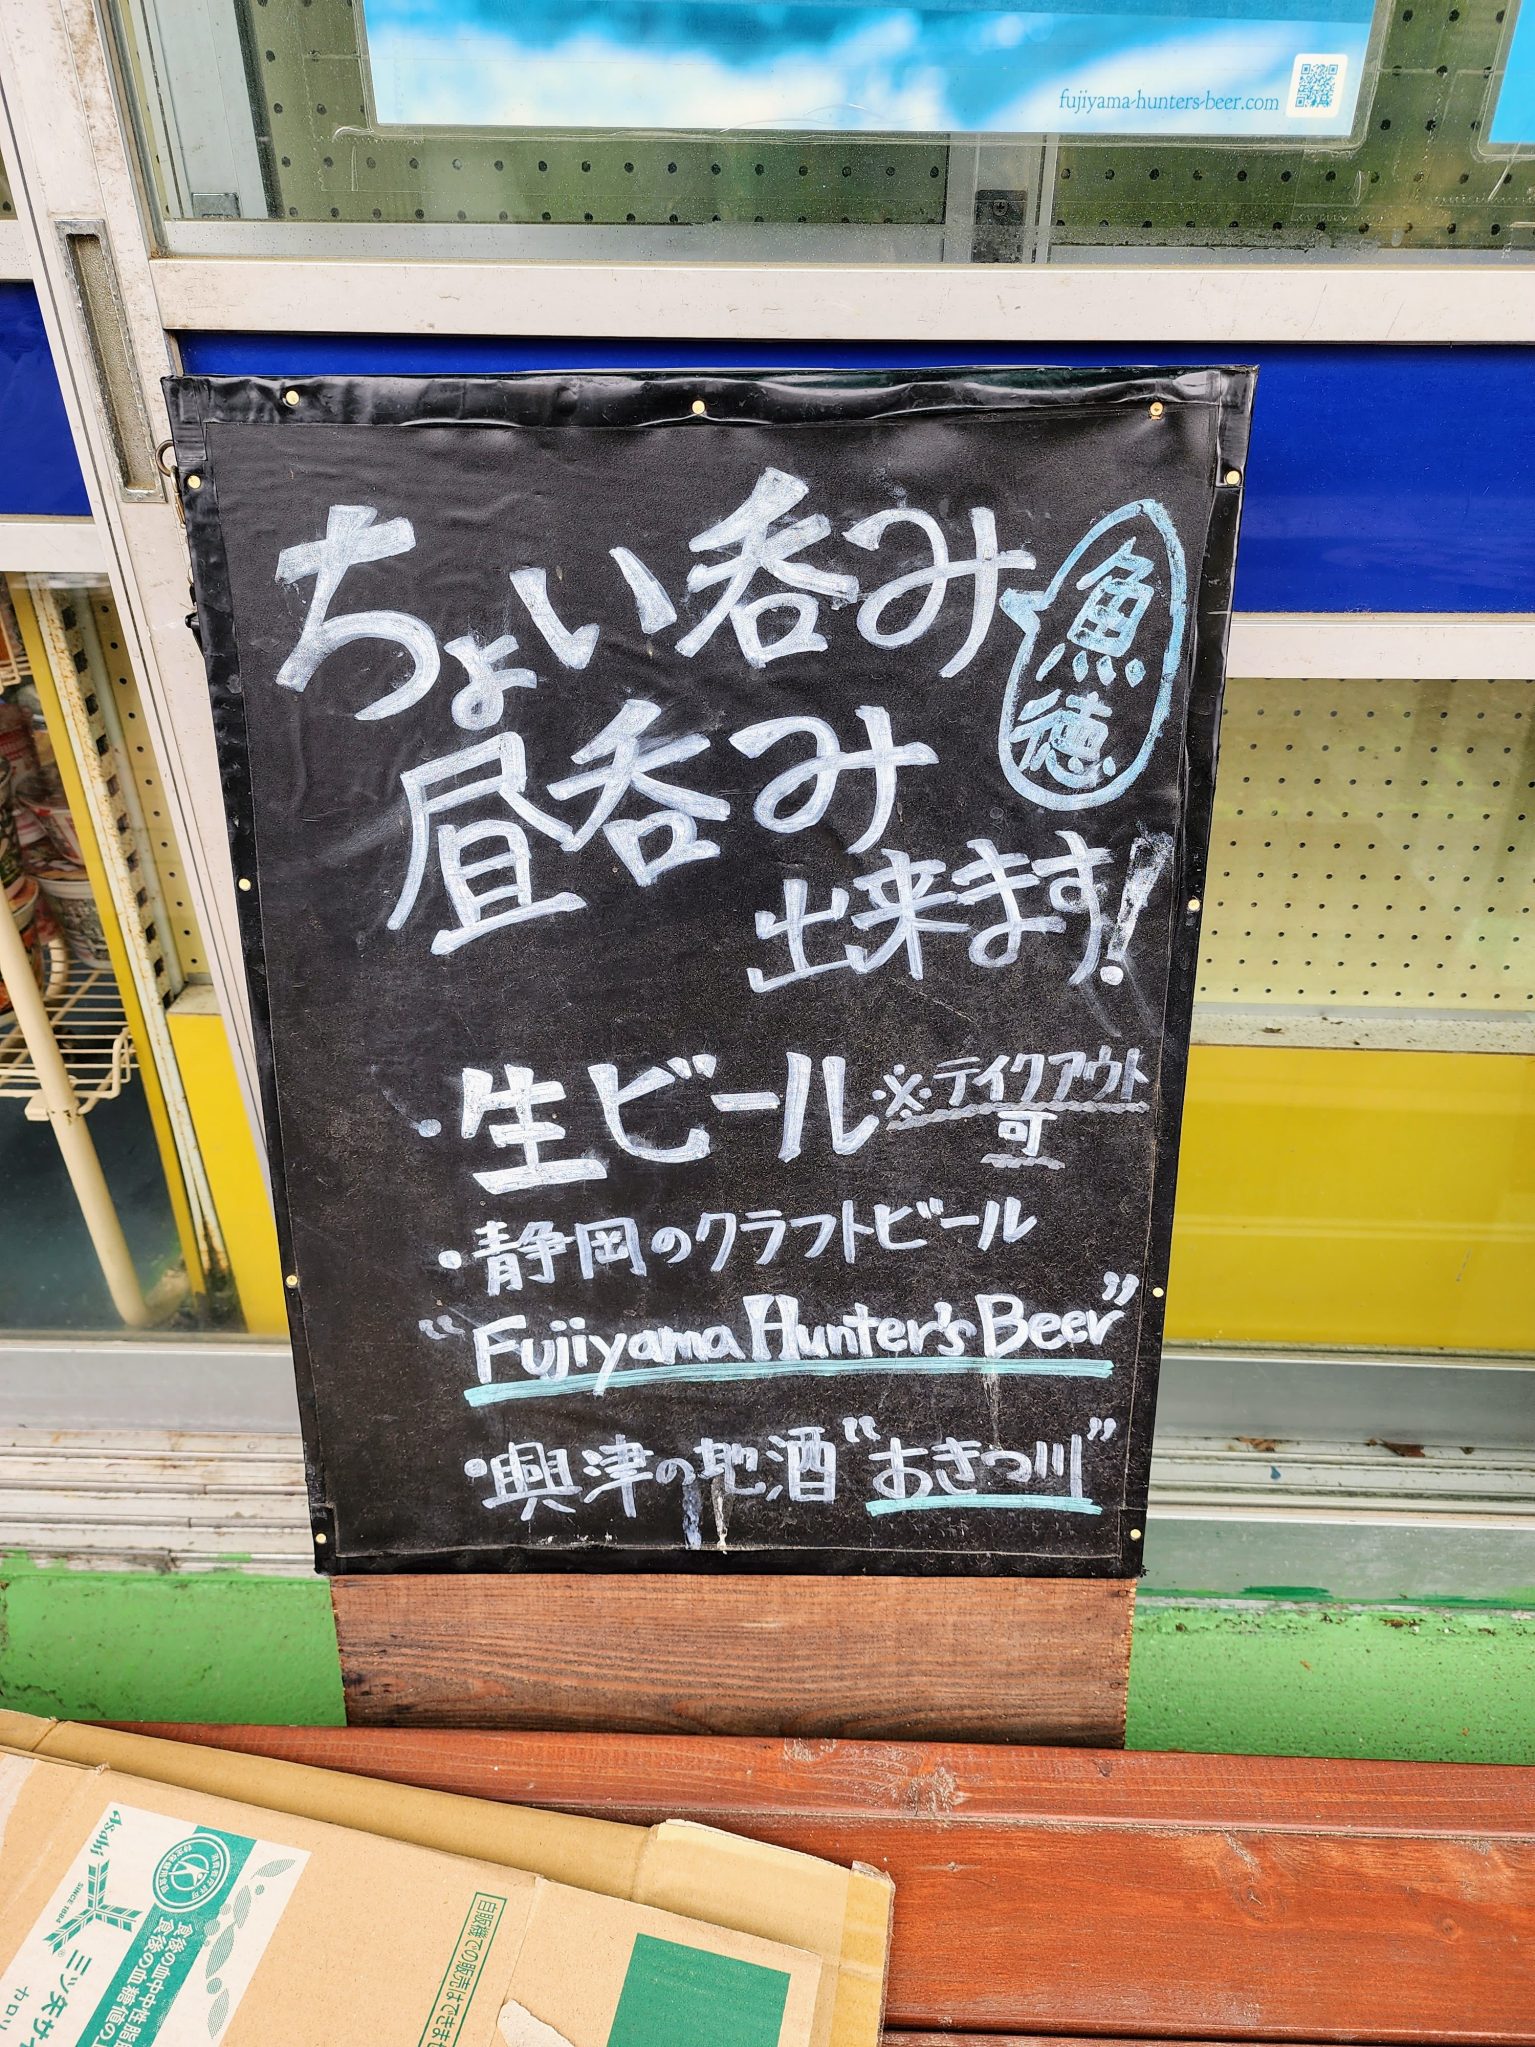 fujiyama-hunters-beer.com
ちょい呑み
魚徳
昼呑み
出来ます!
・生ビール ※テイクアウト
可
・静岡のクラフトビール
“Fujiyama Hunter's Beer”
・興津の地酒“おきつ川”
Asahi
SINCE 1884
三ツ矢サイ
カロリ
食後の血中中性脂肪
食後の血糖値の上
自販機での販売はできませ